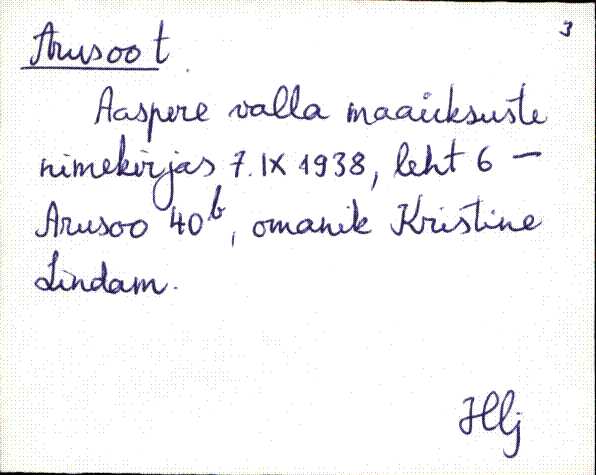 3
Arusoo t
Aaspere valla maaüksuste
nimekirjas 7. IX 1938, leht 6 —
Arusoo 40b, omanik Kristine
Lindam.
Hlj